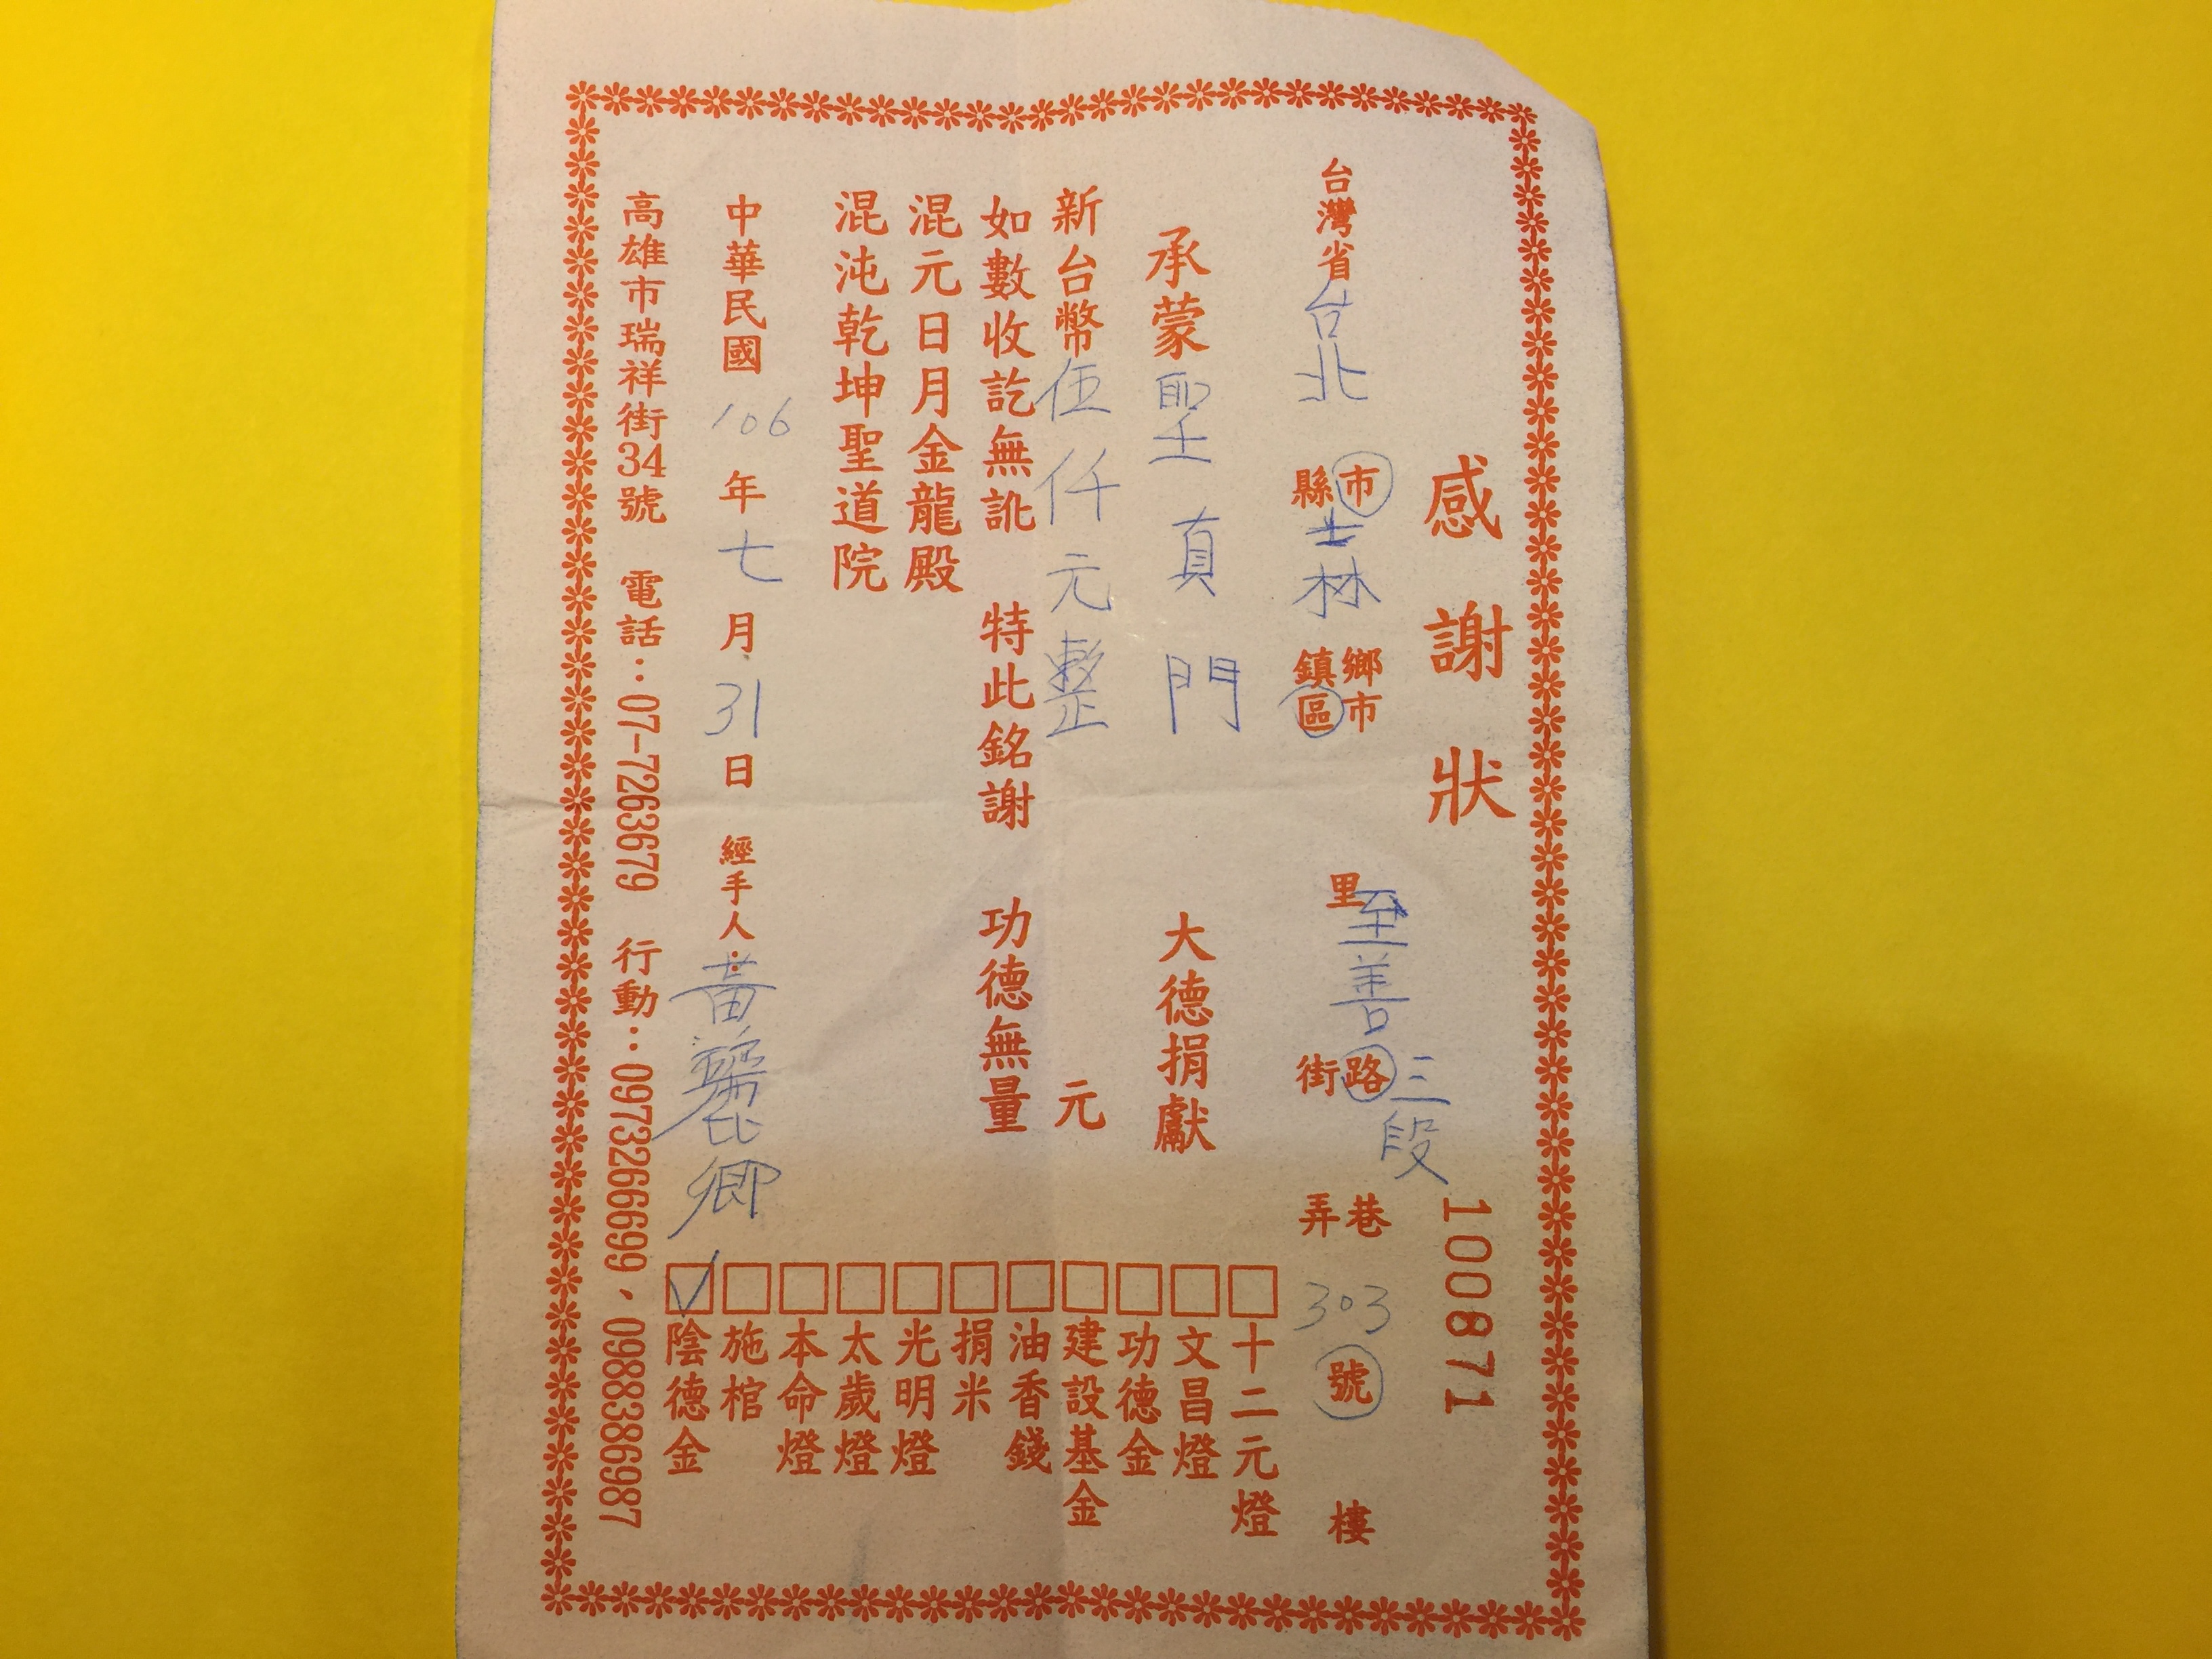 感謝狀
100871
台灣省台北縣市士林鄉鎮市區里至善街路三段巷弄303號樓
承蒙聖真門大德捐獻
新台幣伍仟元整元
如數收訖無訛 特此銘謝 功德無量
混元日月金龍殿
混沌乾坤聖道院
中華民國106年七月31日 經手人:黃麗卿
高雄市瑞祥街34號 電話:07-7263679 行動:0973266699、0988386987
□十二元燈
□文昌燈
□功德金
□建設基金
□油香錢
□捐米
□光明燈
□太歲燈
□本命燈
□施棺
☑陰德金